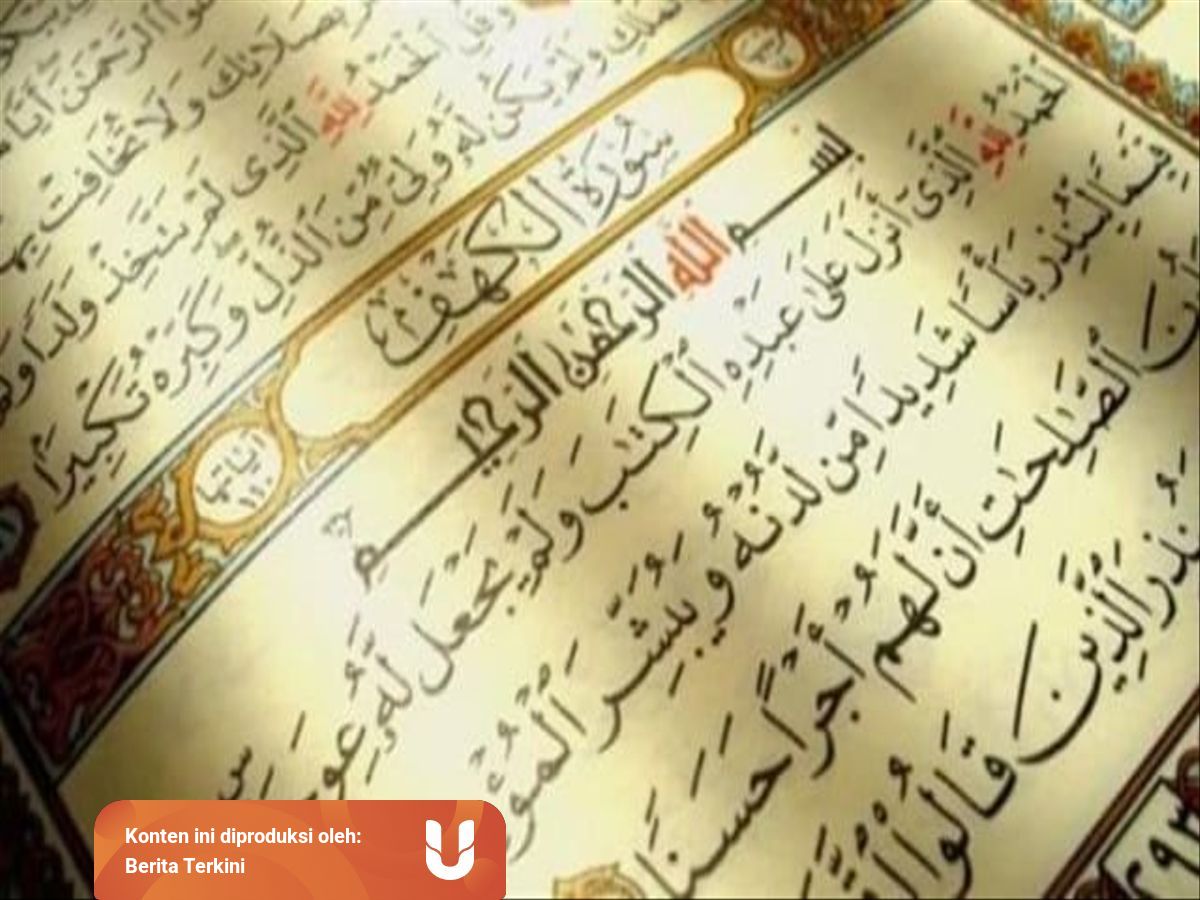 بصلاتك ولا تخافت بها
وقل الحمد لله الذى لم يتخذ ولدا ولم
الملك ولم يكن له ولى من الذل وكبره تكبيرا
سورة الكهف
آياتها ١١٠
بسم الله الرحمن الرحيم
الحمد لله الذى أنزل على عبده الكتب ولم يجعل له عوجا
قيما لينذر بأسا شديدا من لدنه ويبشر
الصلحت أن لهم أجرا حسنا
وينذر الذين قالوا
٢٩٣
Konten ini diproduksi oleh:
Berita Terkini